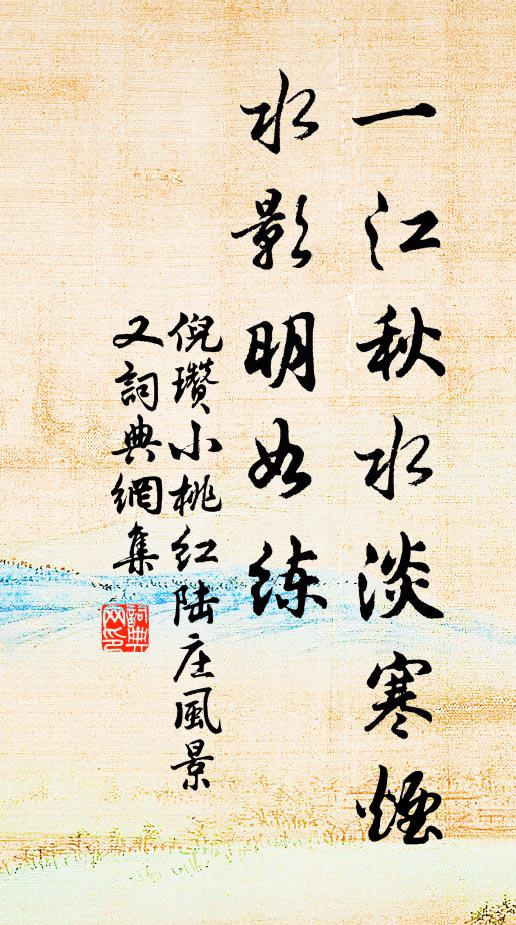 一江秋水淡寒煙
水影明如练
倪瓒小桃红陆庄風景
又詞典網集
詞典